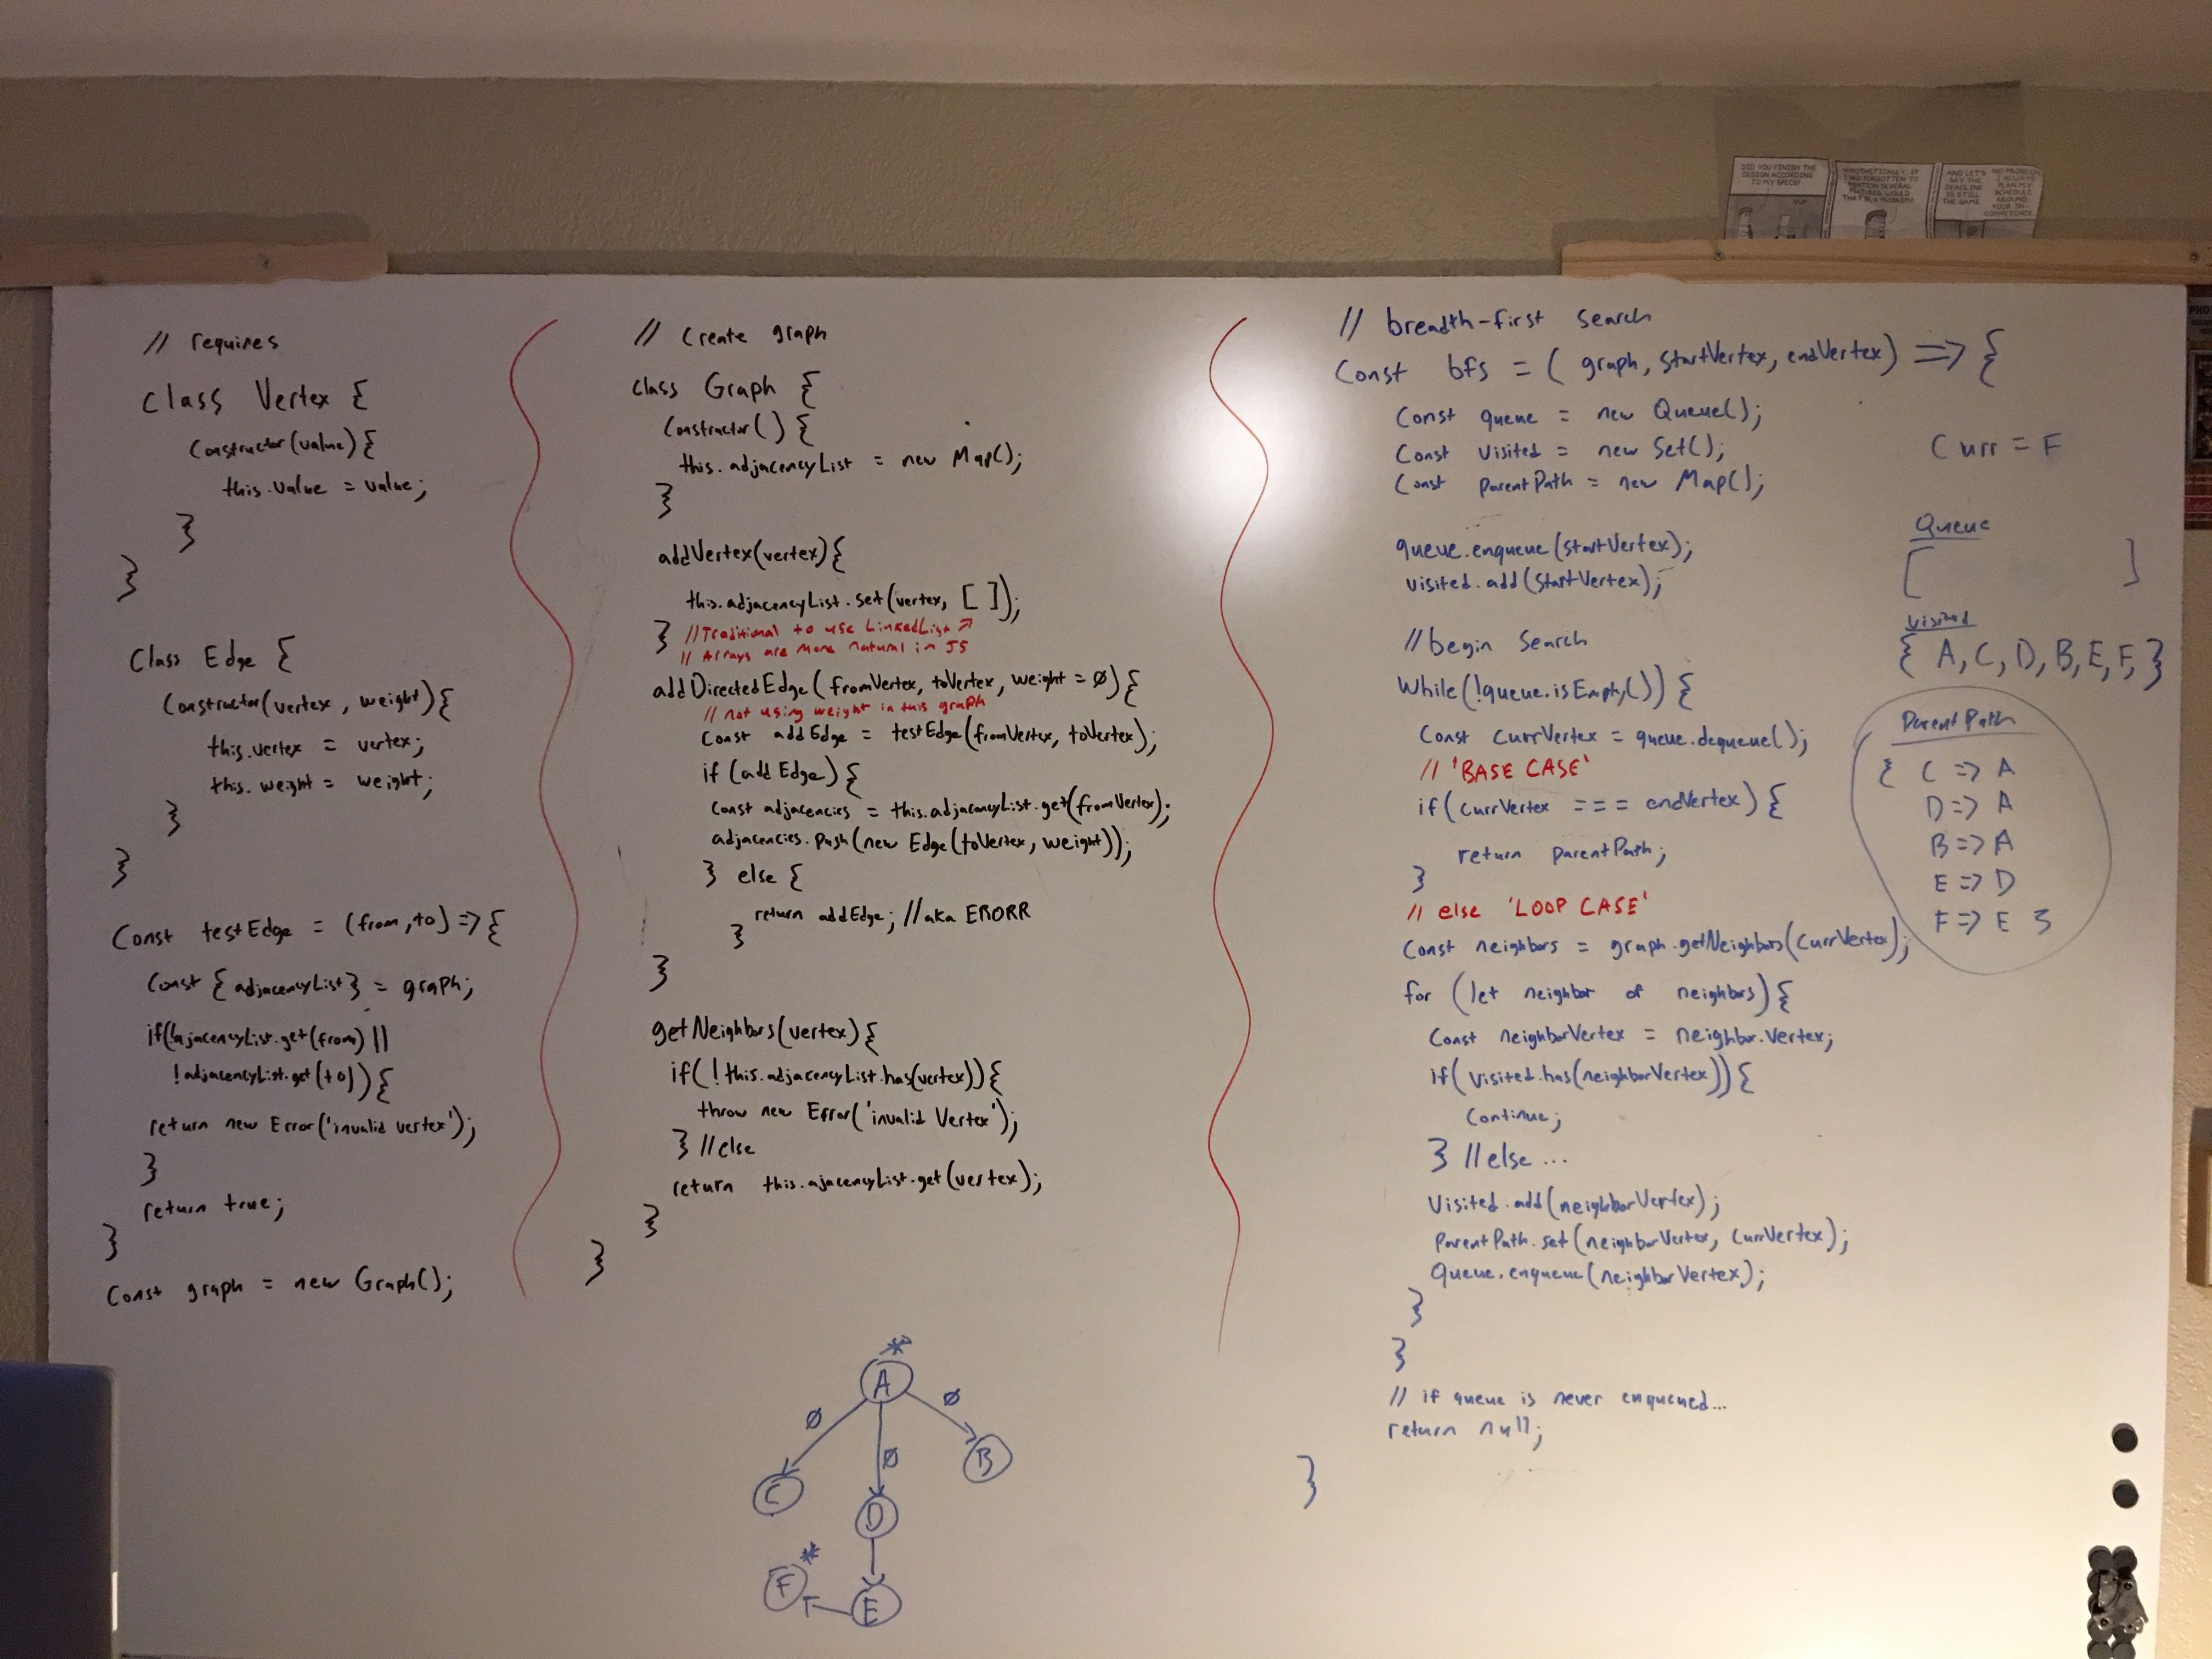 DID YOU FINISH THE
DESIGN ACCORDING
TO MY SPECS?
YUP
HYPOTHETICALLY, IF
I HAD FORGOTTEN TO
MENTION SEVERAL
FEATURES, WOULD
THAT BE A PROBLEM?
AND LET'S
SAY THE
DEADLINE
IS STILL
THE SAME.
NO PROBLEM.
I ALWAYS
PLAN MY
SCHEDULE
AROUND
YOUR IN-
COMPETENCE.
// requires
class Vertex {
constructor(value){
this.value = value;
}
}
Class Edge {
Constructor(vertex, weight){
this.vertex = vertex;
this.weight = weight;
}
}
Const testEdge = (from,to) => {
Const { adjacencyList } = graph;
if(!ajacencyList.get(from) ||
!adjacencyList.get(to)){
return new Error('invalid vertex');
}
return true;
}
Const graph = new Graph();
// Create graph
class Graph {
Constructor() {
this.adjacencyList = new Map();
}
addVertex(vertex){
this.adjacencyList.set(vertex, [ ]);
} //Traditional to use LinkedList ↗
// Arrays are more natural in JS
addDirectedEdge(fromVertex, toVertex, weight = Ø){
// not using weight in this graph
Const addEdge = testEdge(fromVertex, toVertex);
if (addEdge){
Const adjacencies = this.adjacencyList.get(fromVertex);
adjacencies.push(new Edge(toVertex, weight));
} else {
return addEdge; //aka ERORR
}
}
getNeighbors(vertex){
if(!this.adjacencyList.has(vertex)){
throw new Error('invalid Vertex');
} //else
return this.ajacencyList.get(vertex);
}
}
*
A
Ø
Ø
Ø
C
D
B
**
F
E
// breadth-first search
Const bfs = ( graph, startVertex, endVertex) => {
Const queue = new Queue();
Const visited = new Set();
Const parentPath = new Map();
queue.enqueue(startVertex);
visited.add(startVertex);
//begin search
While(!queue.isEmpty()) {
Const currVertex = queue.dequeue();
// 'BASE CASE'
if(currVertex === endVertex) {
return parentPath;
}
// else 'LOOP CASE'
Const neighbors = graph.getNeighbors(currVertex);
for (let neighbor of neighbors){
Const neighborVertex = neighbor.vertex;
if(visited.has(neighborVertex)){
Continue;
} //else ...
Visited.add(neighborVertex);
parentPath.set(neighborVertex, currVertex);
Queue.enqueue(neighborVertex);
}
}
// if queue is never enqueued...
return null;
}
Curr = F
Queue
[ ]
visited
{ A, C, D, B, E, F, }
ParentPath
{ C => A
D => A
B => A
E => D
F => E }